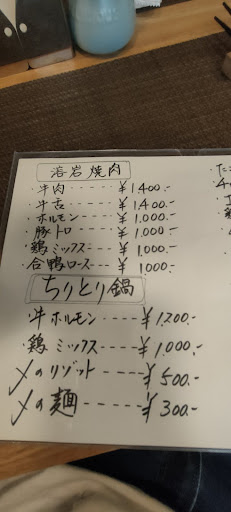 溶岩焼肉
・牛肉-----¥1,400.-
・牛舌-----¥1,400.-
・ホルモン----¥1,000.-
・豚トロ----¥1,000.-
・鶏ミックス---¥1,000.-
・合鴨ロース---¥1000.-
ちりとり鍋
・牛ホルモン----¥1,200.-
・鶏ミックス----¥1,000.-
〆のリゾット----¥500.-
〆の麺-----¥300.-